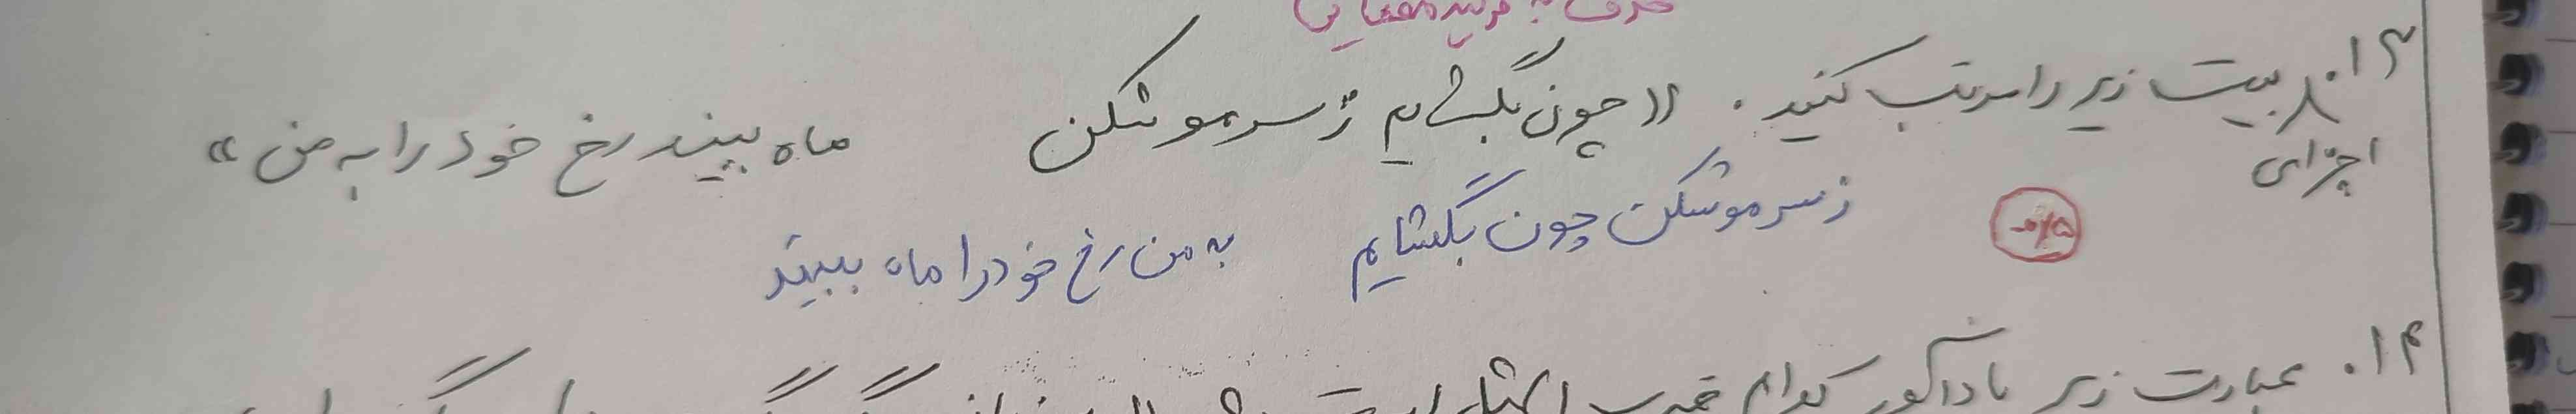 حذف به قرینه معنایی
۱۳. بیت زیر را مرتب کنید. «چون بگشایم ز سر مو شکن ماه ببیند رخ خود را به من»
اجزای
ز سر مو شکن چون بگشایم به من رخ خود را ماه ببیند
-۰/۵
۱۴. عبارت زیر یادآور کدام